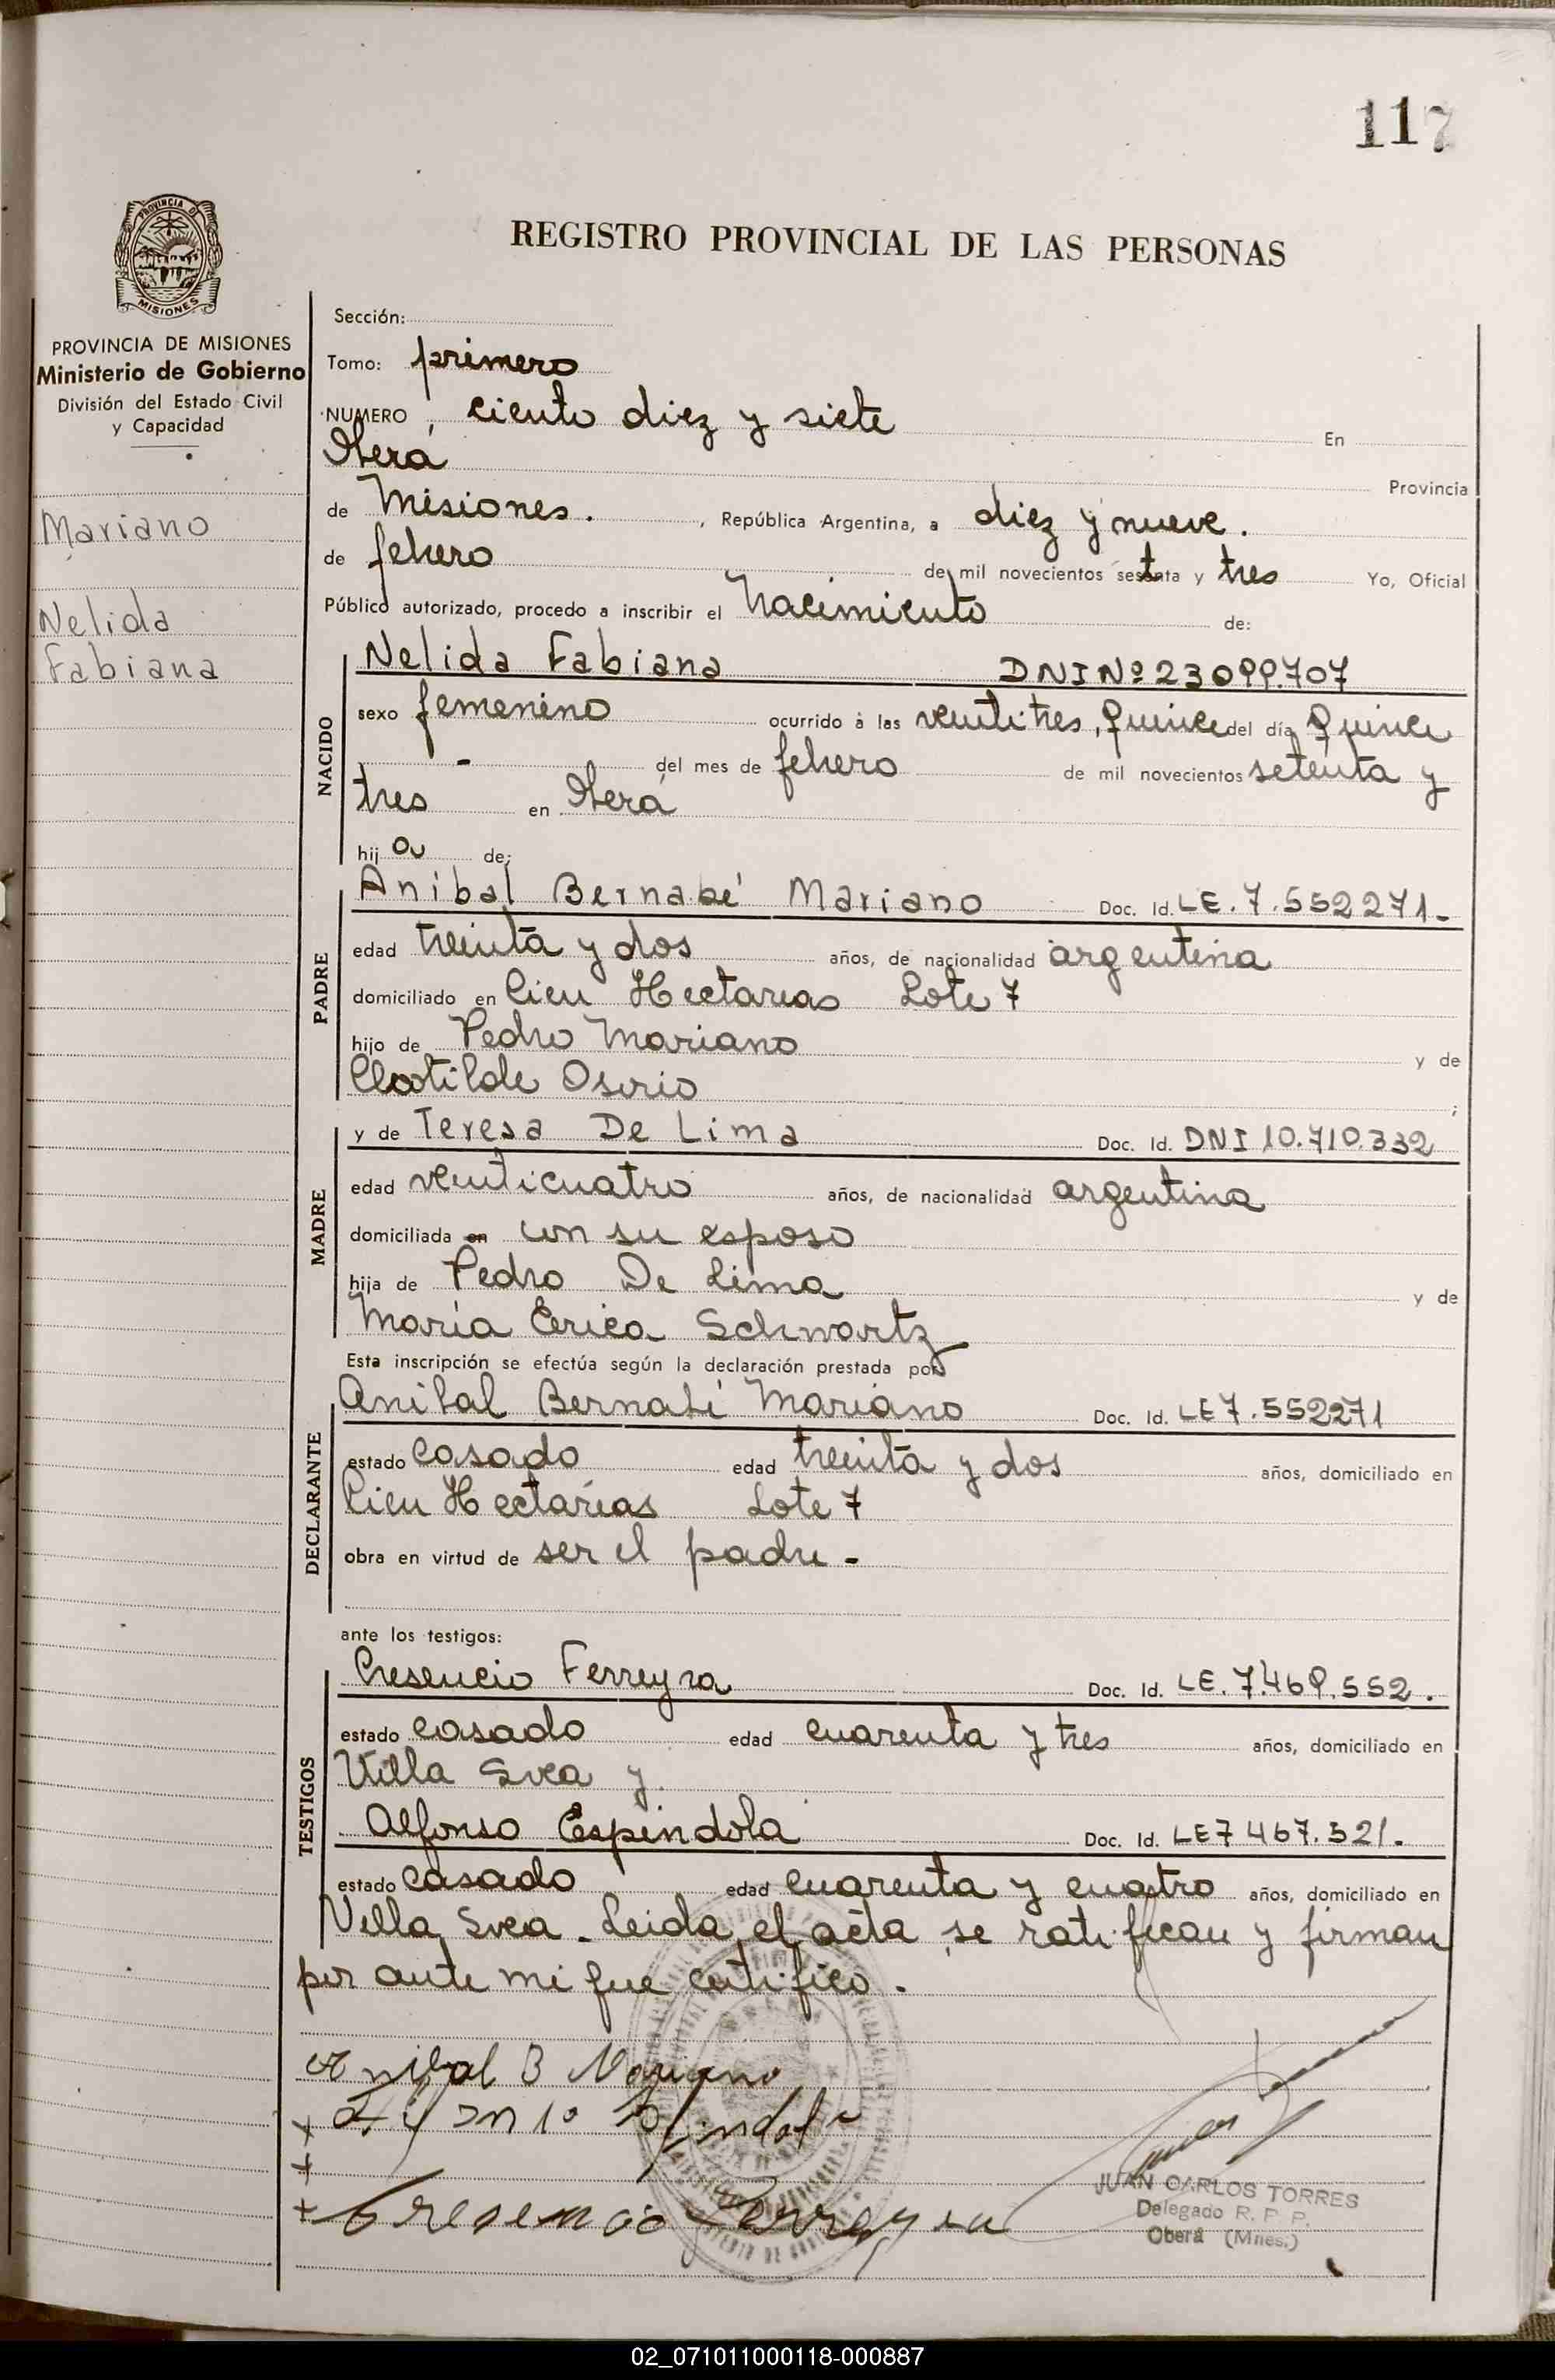 117
PROVINCIA DE
MISIONES
REGISTRO PROVINCIAL DE LAS PERSONAS
PROVINCIA DE MISIONES
Ministerio de Gobierno
División del Estado Civil
y Capacidad
Mariano
Nelida
Fabiana
Sección:
Tomo: primero
NUMERO, ciento diez y siete En
Oberá Provincia
de Misiones. , República Argentina, a diez y nueve.
de febrero de mil novecientos setenta y tres Yo, Oficial
Público autorizado, procedo a inscribir el Nacimiento de:
NACIDO
Nelida Fabiana DNI Nº 23099.707
sexo femenino ocurrido a las veintitres, quince del día quince
- del mes de febrero de mil novecientos setenta y
tres en Oberá
hij a de:
PADRE
Aníbal Bernabé Mariano Doc. Id. LE. 7.552271-
edad treinta y dos años, de nacionalidad argentina
domiciliado en Cien Hectareas Lote 7
hijo de Pedro Mariano y de
Clotilde Osorio ;
MADRE
y de Teresa De Lima Doc. Id. DNI 10.710.332
edad veinticuatro años, de nacionalidad argentina
domiciliada en con su esposo
hija de Pedro De Lima y de
María Erica Schwartz
Esta inscripción se efectúa según la declaración prestada por
DECLARANTE
Anibal Bernabé Mariano Doc. Id. LE 7.552271
estado casado edad treinta y dos años, domiciliado en
Cien Hectareas Lote 7
obra en virtud de ser el padre -
ante los testigos:
TESTIGOS
Cresencio Ferreyra Doc. Id. LE. 7.469.552.
estado casado edad cuarenta y tres años, domiciliado en
Villa Svea y
Alfonso Espindola Doc. Id. LE 7 467.521.
estado casado edad cuarenta y cuatro años, domiciliado en
Villa Svea - Leida el acta se ratifican y firman
por ante mi que certifico.
Anibal B Mariano
+
+
+ Cresencio Ferreyra
JUAN CARLOS TORRES
Delegado R. P. P.
Oberá (Mnes.)
02_071011000118-000887